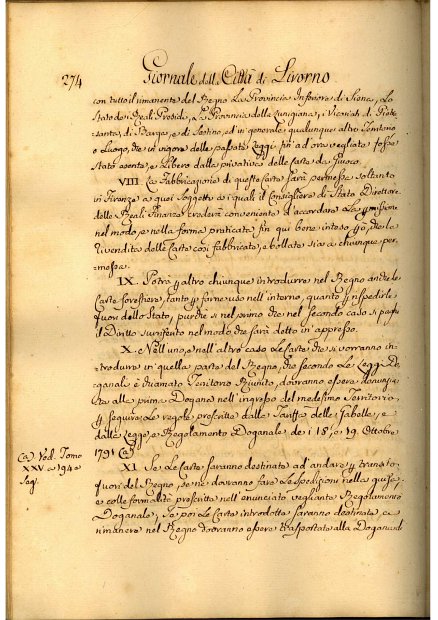 274 Giornale della Città di Livorno
con tutto il rimanente del Regno la Provincia Inferiore di Siena, Lo
Stato dei Reali Presidi, La Provincia della Lunigiana, i Vicariati di Pietra
santa, di Barga, e di Sestino, ed in generale qualunque altro Territorio
o Luogo, che in vigore delle passate Leggi fin ad ora vegliate fosse
stato esente, e Libero dalla privativa delle Carte da Giuoco.
VIII. La Fabbricazione di queste Carte sarà permessa soltanto
in Firenze a quei Soggetti ai quali il Consigliere di Stato Direttore
delle Reali Finanze crederà conveniente d'accordare La permissione
nel modo, e nella forma praticata fin qui bene inteso però, che la
rivendita delle Carte così fabbricate, e bollate sia a chiunque per-
messa.
IX. Potrà per altro chiunque introdurre nel Regno anche le
Carte forestiere, tanto per farne uso nell'interno, quanto per spedirle
fuori dello Stato, purché sì nel primo che nel secondo caso si paghi
il Diritto nel modo, che sarà detto in appresso.
X. Nell'uno, e nell'altro caso le Carte che si vorranno in-
trodurre in quella parte del Regno, che secondo le Leggi Do-
ganali è chiamato Territorio Riunito, dovranno essere denunzia
te alla prima Dogana nell'ingresso del medesimo Territorio,
per seguire le regole prescritte dalla Tariffa delle Gabelle, e
dalla Legge, e Regolamento Doganale de i 18, e 19 Ottobre
1791 (a)
(a) Ved. Tomo
XXV. a 194 e
seg.
XI. Se le Carte saranno destinate ad andare per transito
fuori del Regno, se ne dovranno fare le spedizioni nella guisa,
e colle formalità prescritte nell'enunciato vegliante Regolamento
Doganale; Se poi le Carte introdotte saranno destinate, a
rimanere nel Regno dovranno essere trasportate alla Dogana di